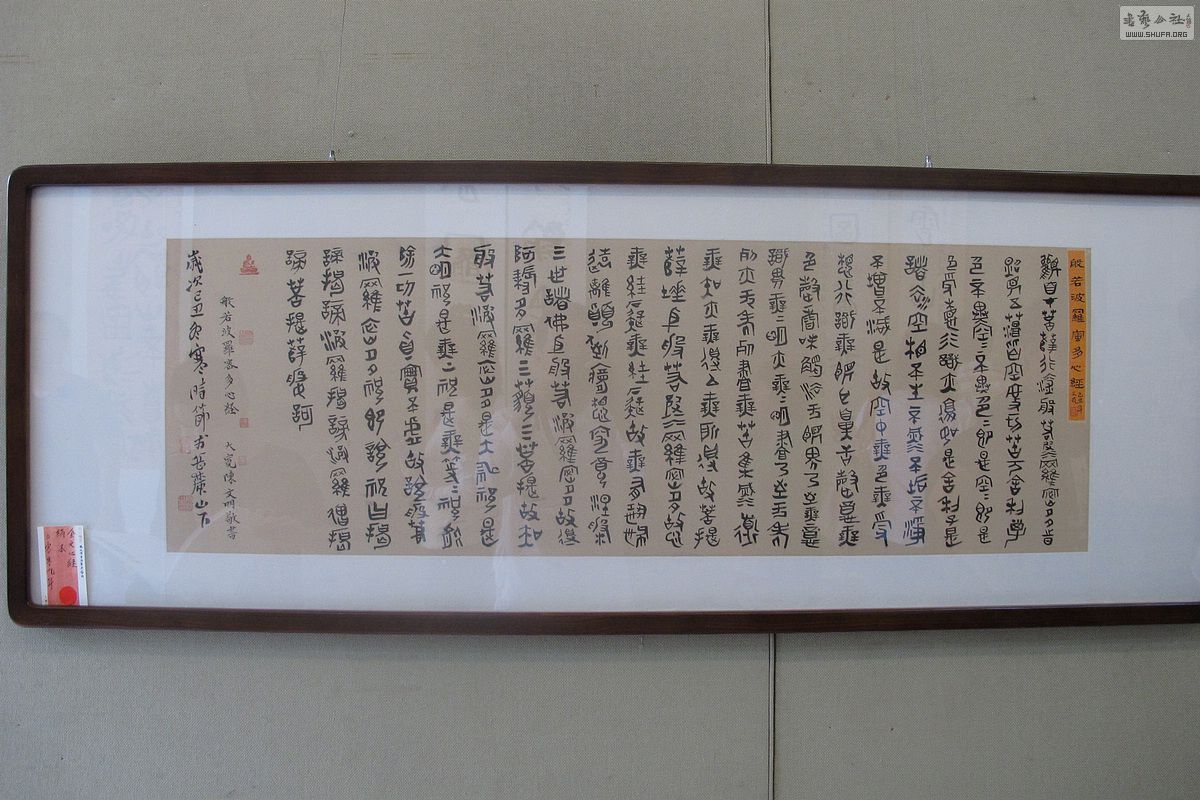 般若波羅蜜多心經
觀自在菩薩行深般若波羅蜜多時
照見五蘊皆空度一切苦厄舍利子
色不異空〻不異色〻即是空〻即是
色受想行識亦復如是舍利子是
諸法空相不生不滅不垢不淨
不增不減是故空中無色無受
想行識無眼耳鼻舌身意無
色聲香味觸法無眼界乃至無意
識界無〻明亦無〻明盡乃至無老
死亦無老死盡無苦集滅道
無知亦無得以無所得故菩提
薩埵依般若波羅蜜多故心
無罣礙無罣礙故無有恐怖
遠離顛倒夢想究竟涅槃
三世諸佛依般若波羅蜜多故得
阿耨多羅三藐三菩提故知
般若波羅蜜多是大神咒是
大明咒是無上咒是無等〻咒能
除一切苦真實不虛故說般若
波羅蜜多咒即說咒曰揭
諦揭諦波羅揭諦波羅僧揭
諦菩提薩婆訶
般若波羅蜜多心經 大寬陳文明敬書
歲次己丑冬寒時節於岳麓山下
書藝公社
WWW.SHUFA.ORG